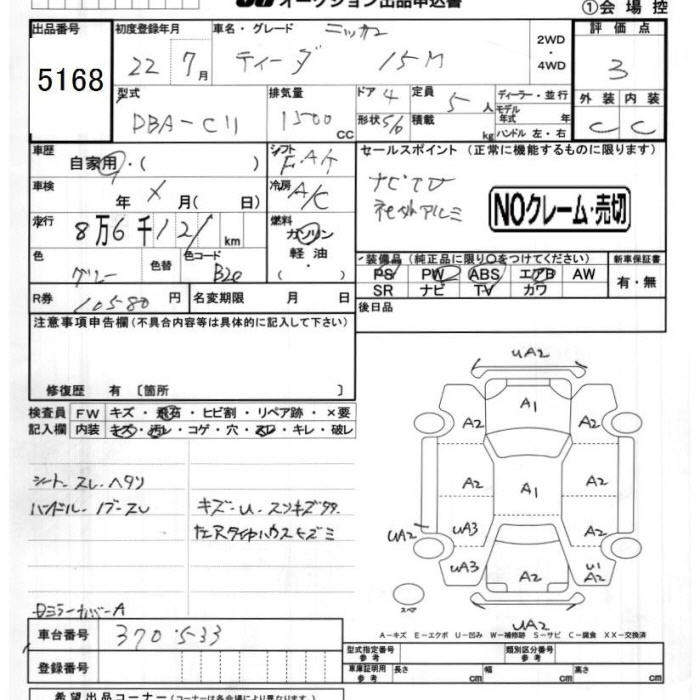 オークション出品申込書
①会場控
出品番号 初度登録年月 車名・グレード ニッサン 評価点
5168 22 7月 ティーダ 15M 2WD・4WD 3
型式 排気量 ドア 4 定員 5人 ディーラー・並行 外装 内装
DBA-C11 1500 CC 形状 5/6 積載 kg モデル年式 年式 ハンドル 左・右 C C
車歴 自家用・( シフト F.AT セールスポイント (正常に機能するものに限ります)
車検 年 X 月( 日) 冷房 A/C ナビTV
社外アルミ
NOクレーム・売切
走行 8万6千121km 燃料 ガソリン・軽油・( )
色 グレー 色替 色コード B20
装備品(純正品に限り○をつけてください) 新車保証書
PS PW ABS エアB AW 有・無
SR ナビ TV カワ
R券 10580円 名変期限 月 日 後日品
注意事項申告欄(不具合内容等は具体的に記入して下さい)
修復歴 有 〔箇所 〕
検査員 FW キズ・飛石・ヒビ割・リペア跡・×要
記入欄 内装 キズ・汚レ・コゲ・穴・スレ・キレ・破レ
シート スレ ヘタリ
ハンドル ノブ-スレ
キズ-U スリキズタタ
左Rタイヤハウスキズミ
Dミラーカバー-A
UA2
A1
A2 A2
A2 A1 A2
UA2 UA3 A2
UA3 A2 U1 A2
UA2
スペア
A-キズ E-エクボ U-凹み W-補修跡 S-サビ C-腐食 XX-交換済
車台番号 370533
登録番号
型式指定番号 参考 類別区分番号 参考
車庫証明用 参考 長さ cm 幅 cm 高さ cm
希望出品コーナー(コーナーは各会場により異なります)